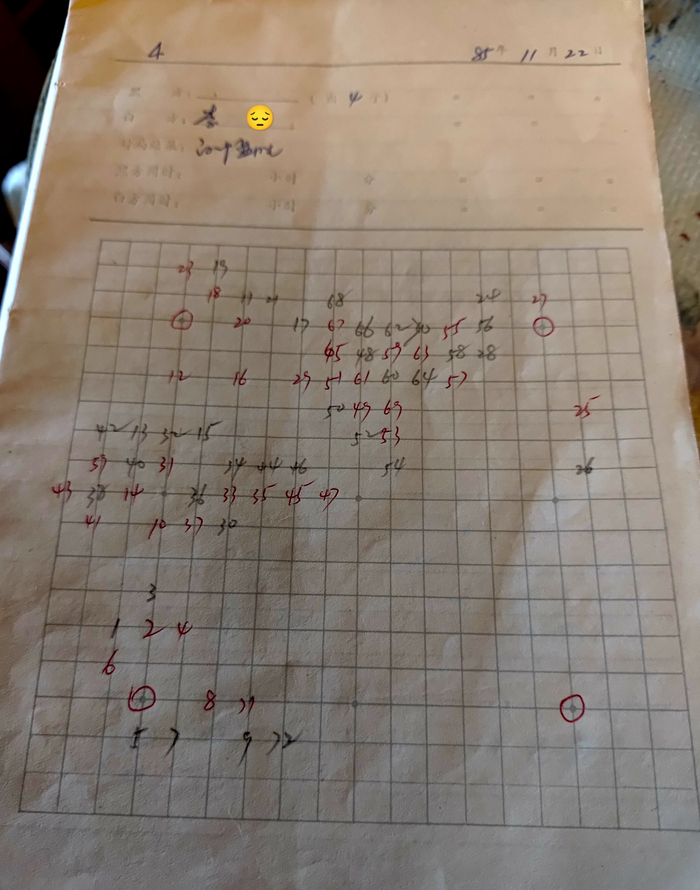 4 85年 11月 22日
黑 方： （ 4 子）
白 方：李
对局结果：
黑方用时： 小时 分
白方用时： 小时 分
23 19
18 11 21 68 24 27
20 17 67 66 62 70 55 56
65 48 59 63 58 28
12 16 29 51 61 60 64 57
50 49 69 25
42 13 32 15 52 53
39 40 31 34 44 46 54 26
43 38 14 36 33 35 45 47
41 10 37 30
3
1 2 4
6
8
5 7 9 22